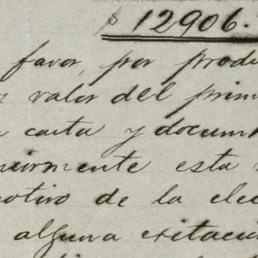 $ 12906.
favor, por produ
valor del prim
carta y docum
esta
otivo de la elec
alguna exitacio